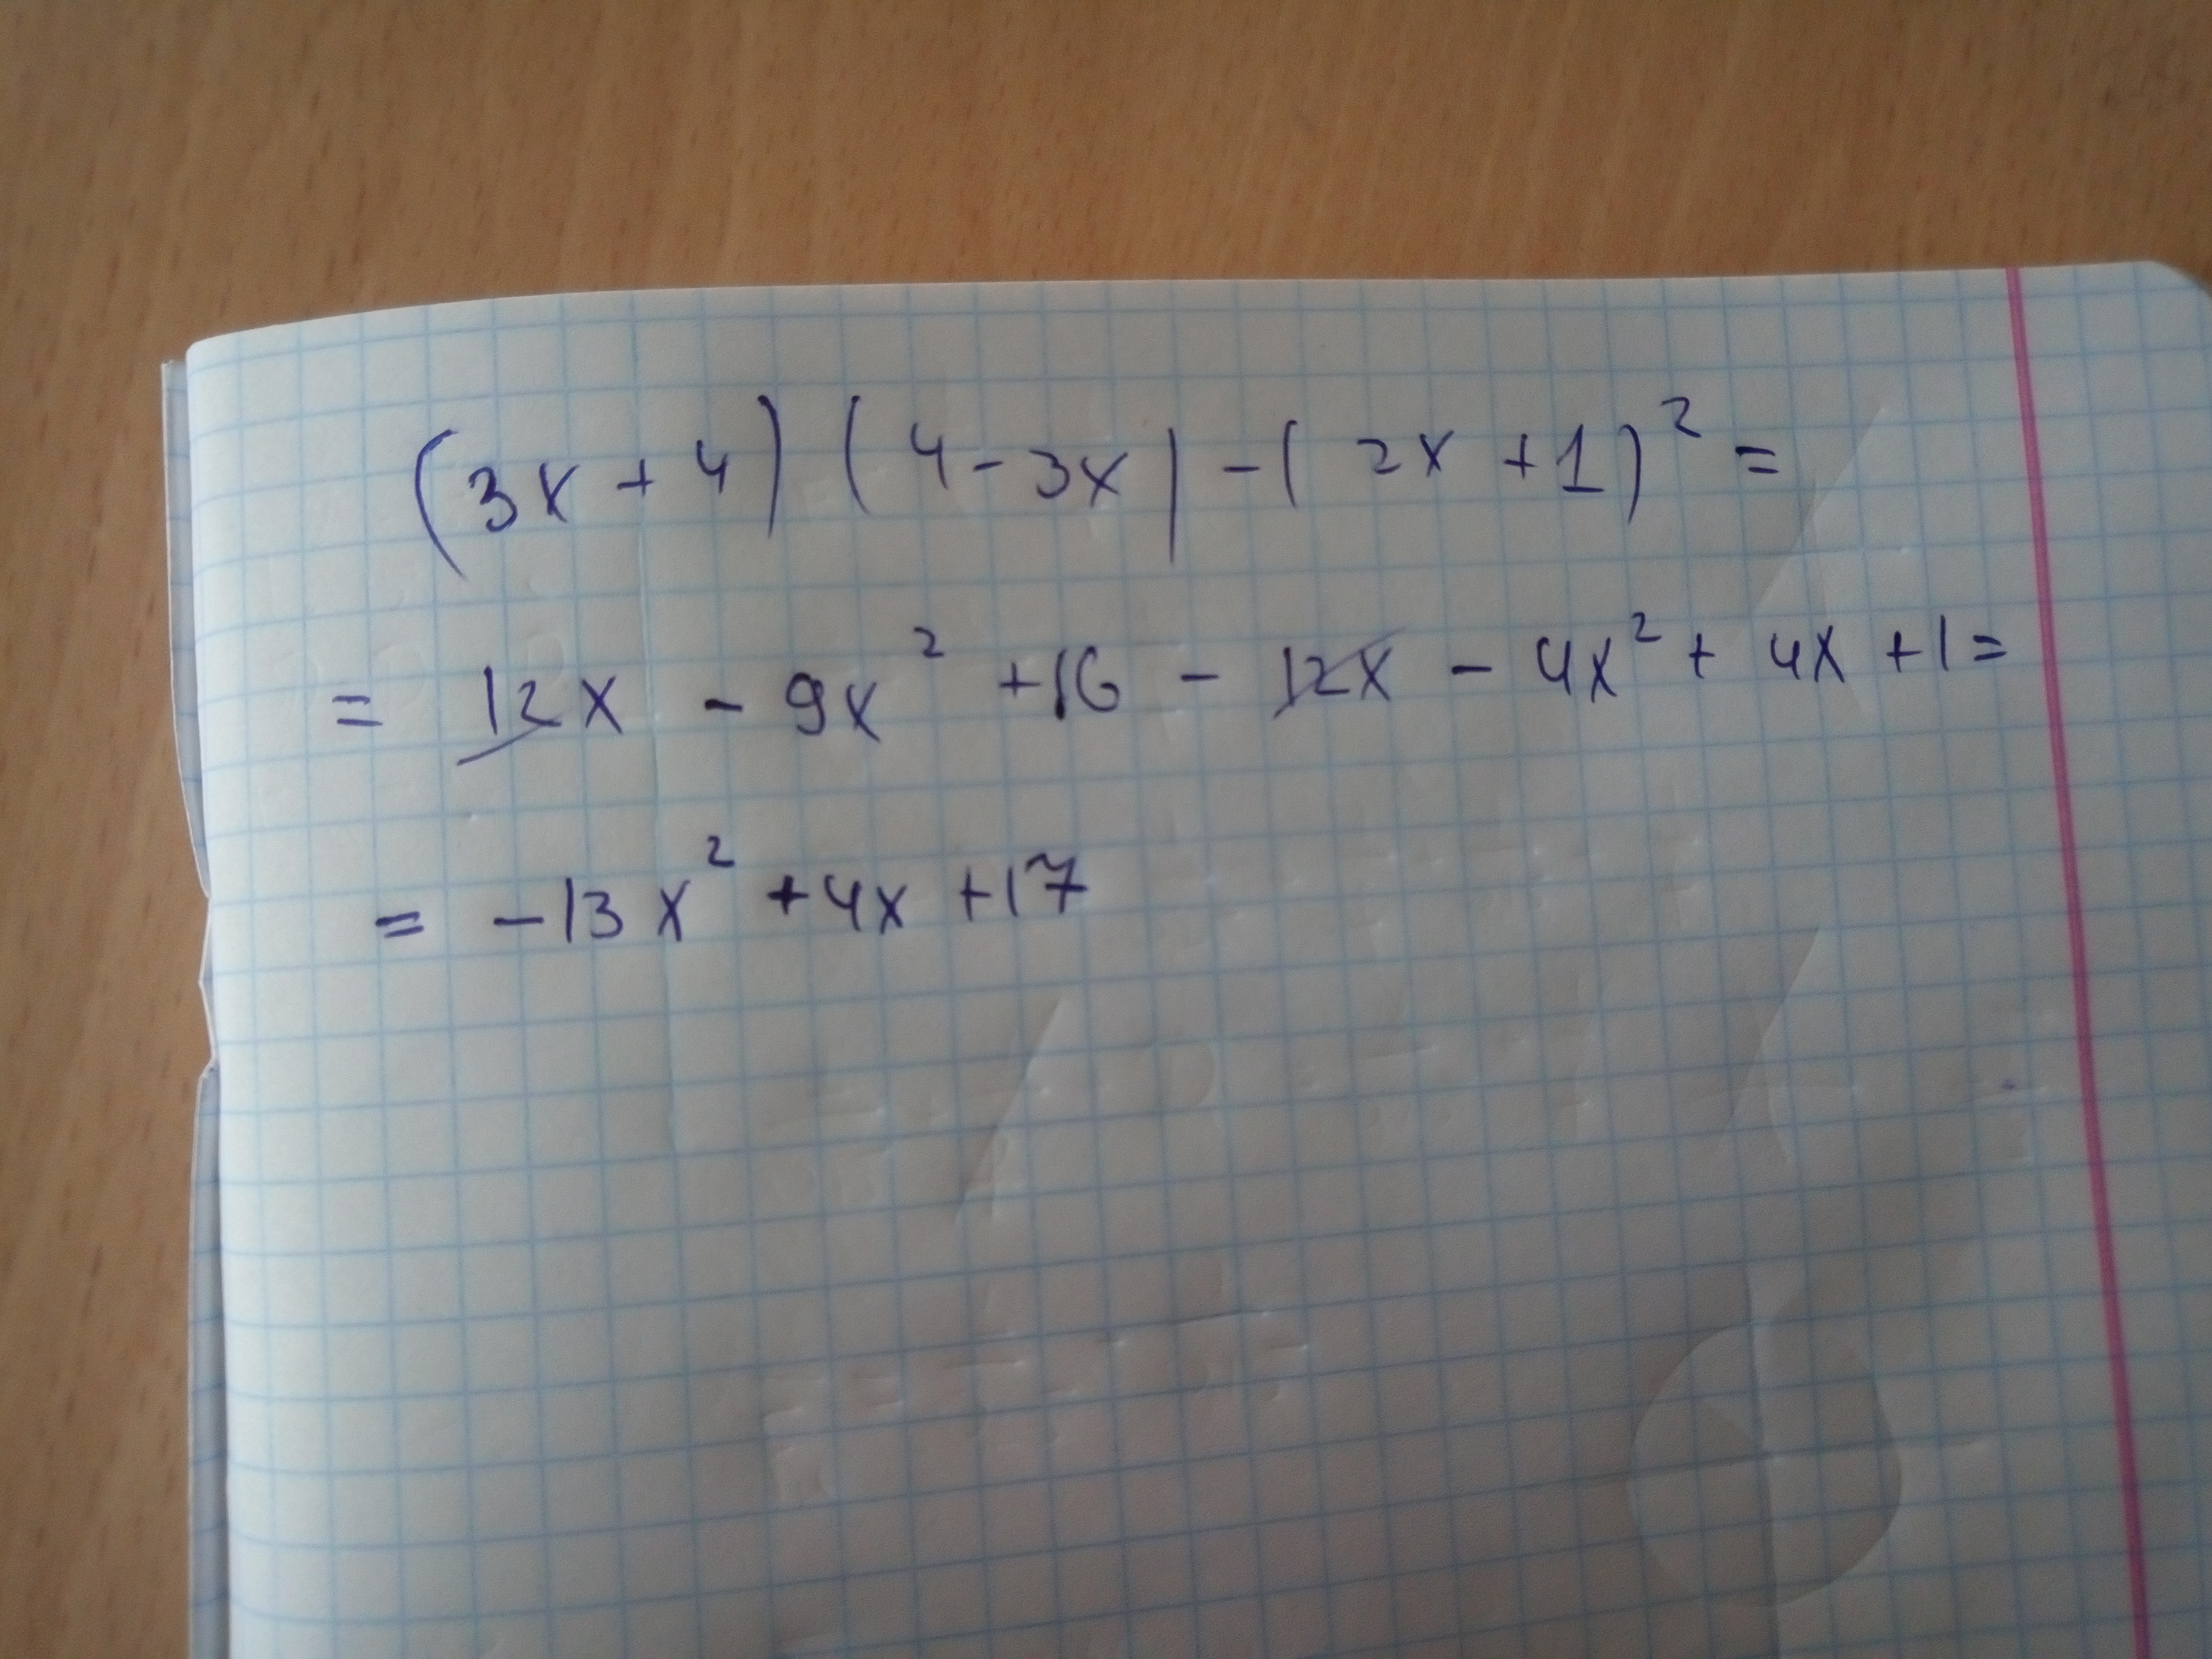 (3x + 4) (4 - 3x) - (2x + 1)² =
= 12x - 9x² + 16 - 12x - 4x² + 4x + 1 =
= -13x² + 4x + 17